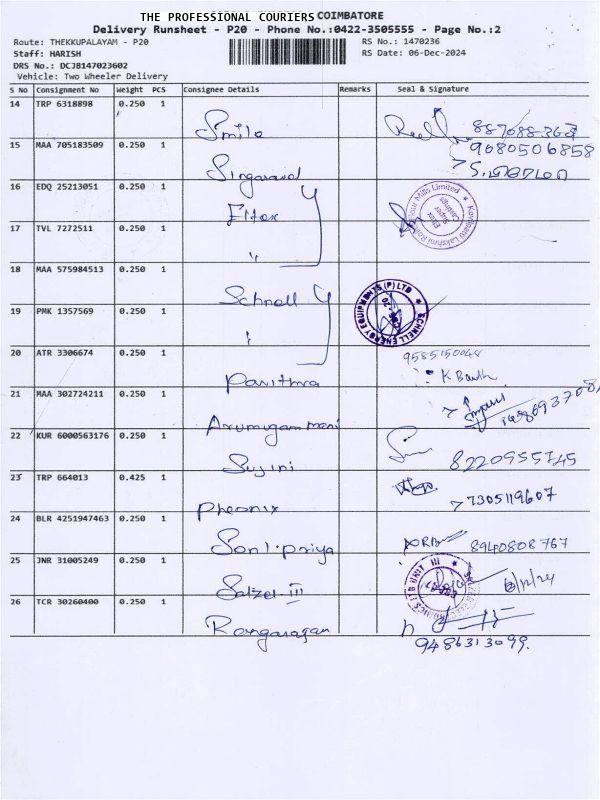 THE PROFESSIONAL COURIERS COIMBATORE
Delivery Runsheet - P20 - Phone No.:0422-3505555 - Page No.:2
Route: THEKKUPALAYAM - P20 RS No.: 1470236
Staff: HARISH RS Date: 06-Dec-2024
DRS No.: DCJB147023602
Vehicle: Two Wheeler Delivery
S No Consignment No Weight PCS Consignee Details Remarks Seal & Signature
14 TRP 6318898 0.250 1 Smilo
15 MAA 705183509 0.250 1 Singaraval 9080506858
16 EDQ 25213051 0.250 1 Eltex
17 TVL 7272511 0.250 1 "
18 MAA 575984513 0.250 1 Schnell
SCHNELL ENERGY EQUIPMENTS (P) LTD
19 PMK 1357569 0.250 1 "
20 ATR 3306674 0.250 1 Pavithra
21 MAA 302724211 0.250 1 Arumugam mani
22 KUR 6000563176 0.250 1 Sujini 8220955745
23 TRP 664013 0.425 1 Pheonix 7305119607
24 BLR 4251947463 0.250 1 Sont.priya 8940808767
25 JNR 31005249 0.250 1 Salzer III 6/12/24
26 TCR 30260400 0.250 1 Rangarajan
9486313099.